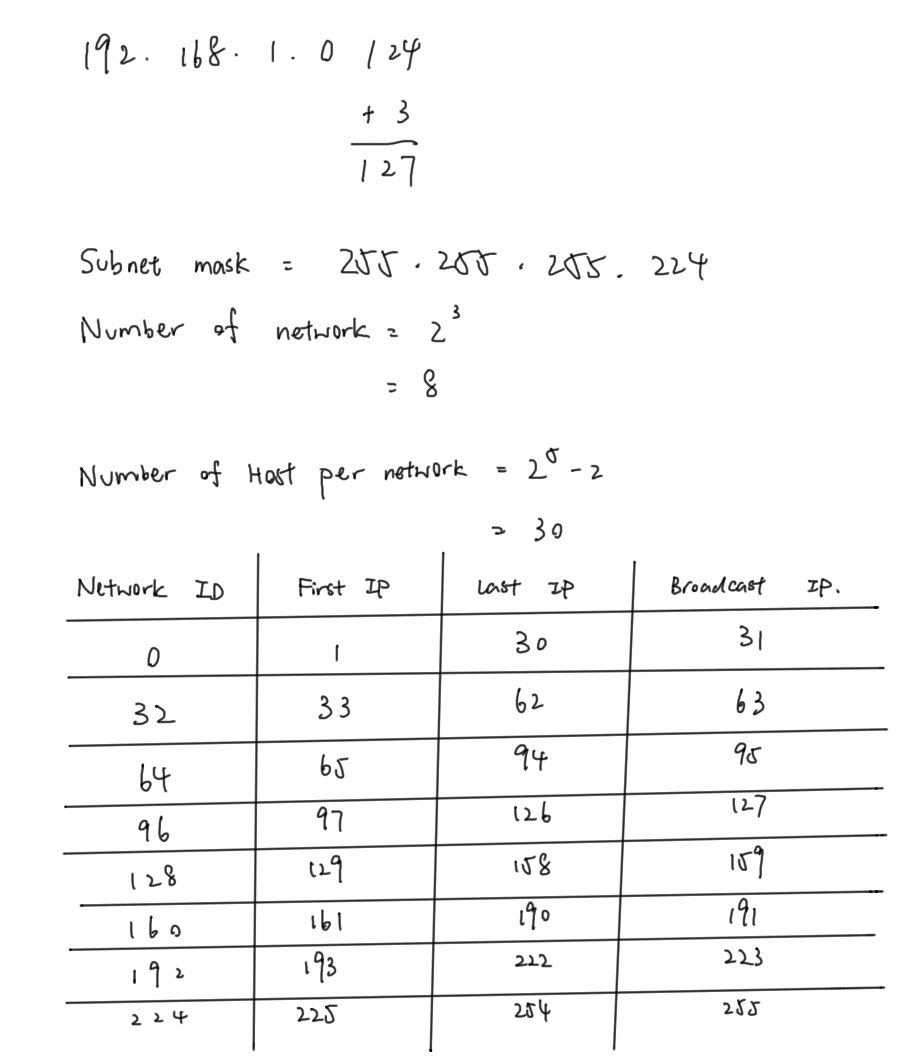 192. 168. 1. 0 /24
+ 3
/27
Subnet mask = 255. 255. 255. 224
Number of network = 2³
= 8
Number of Host per network = 2⁵ - 2
= 30
Network ID First IP Last IP Broadcast IP.
0 1 30 31
32 33 62 63
64 65 94 95
96 97 126 127
128 129 158 159
160 161 190 191
192 193 222 223
224 225 254 255